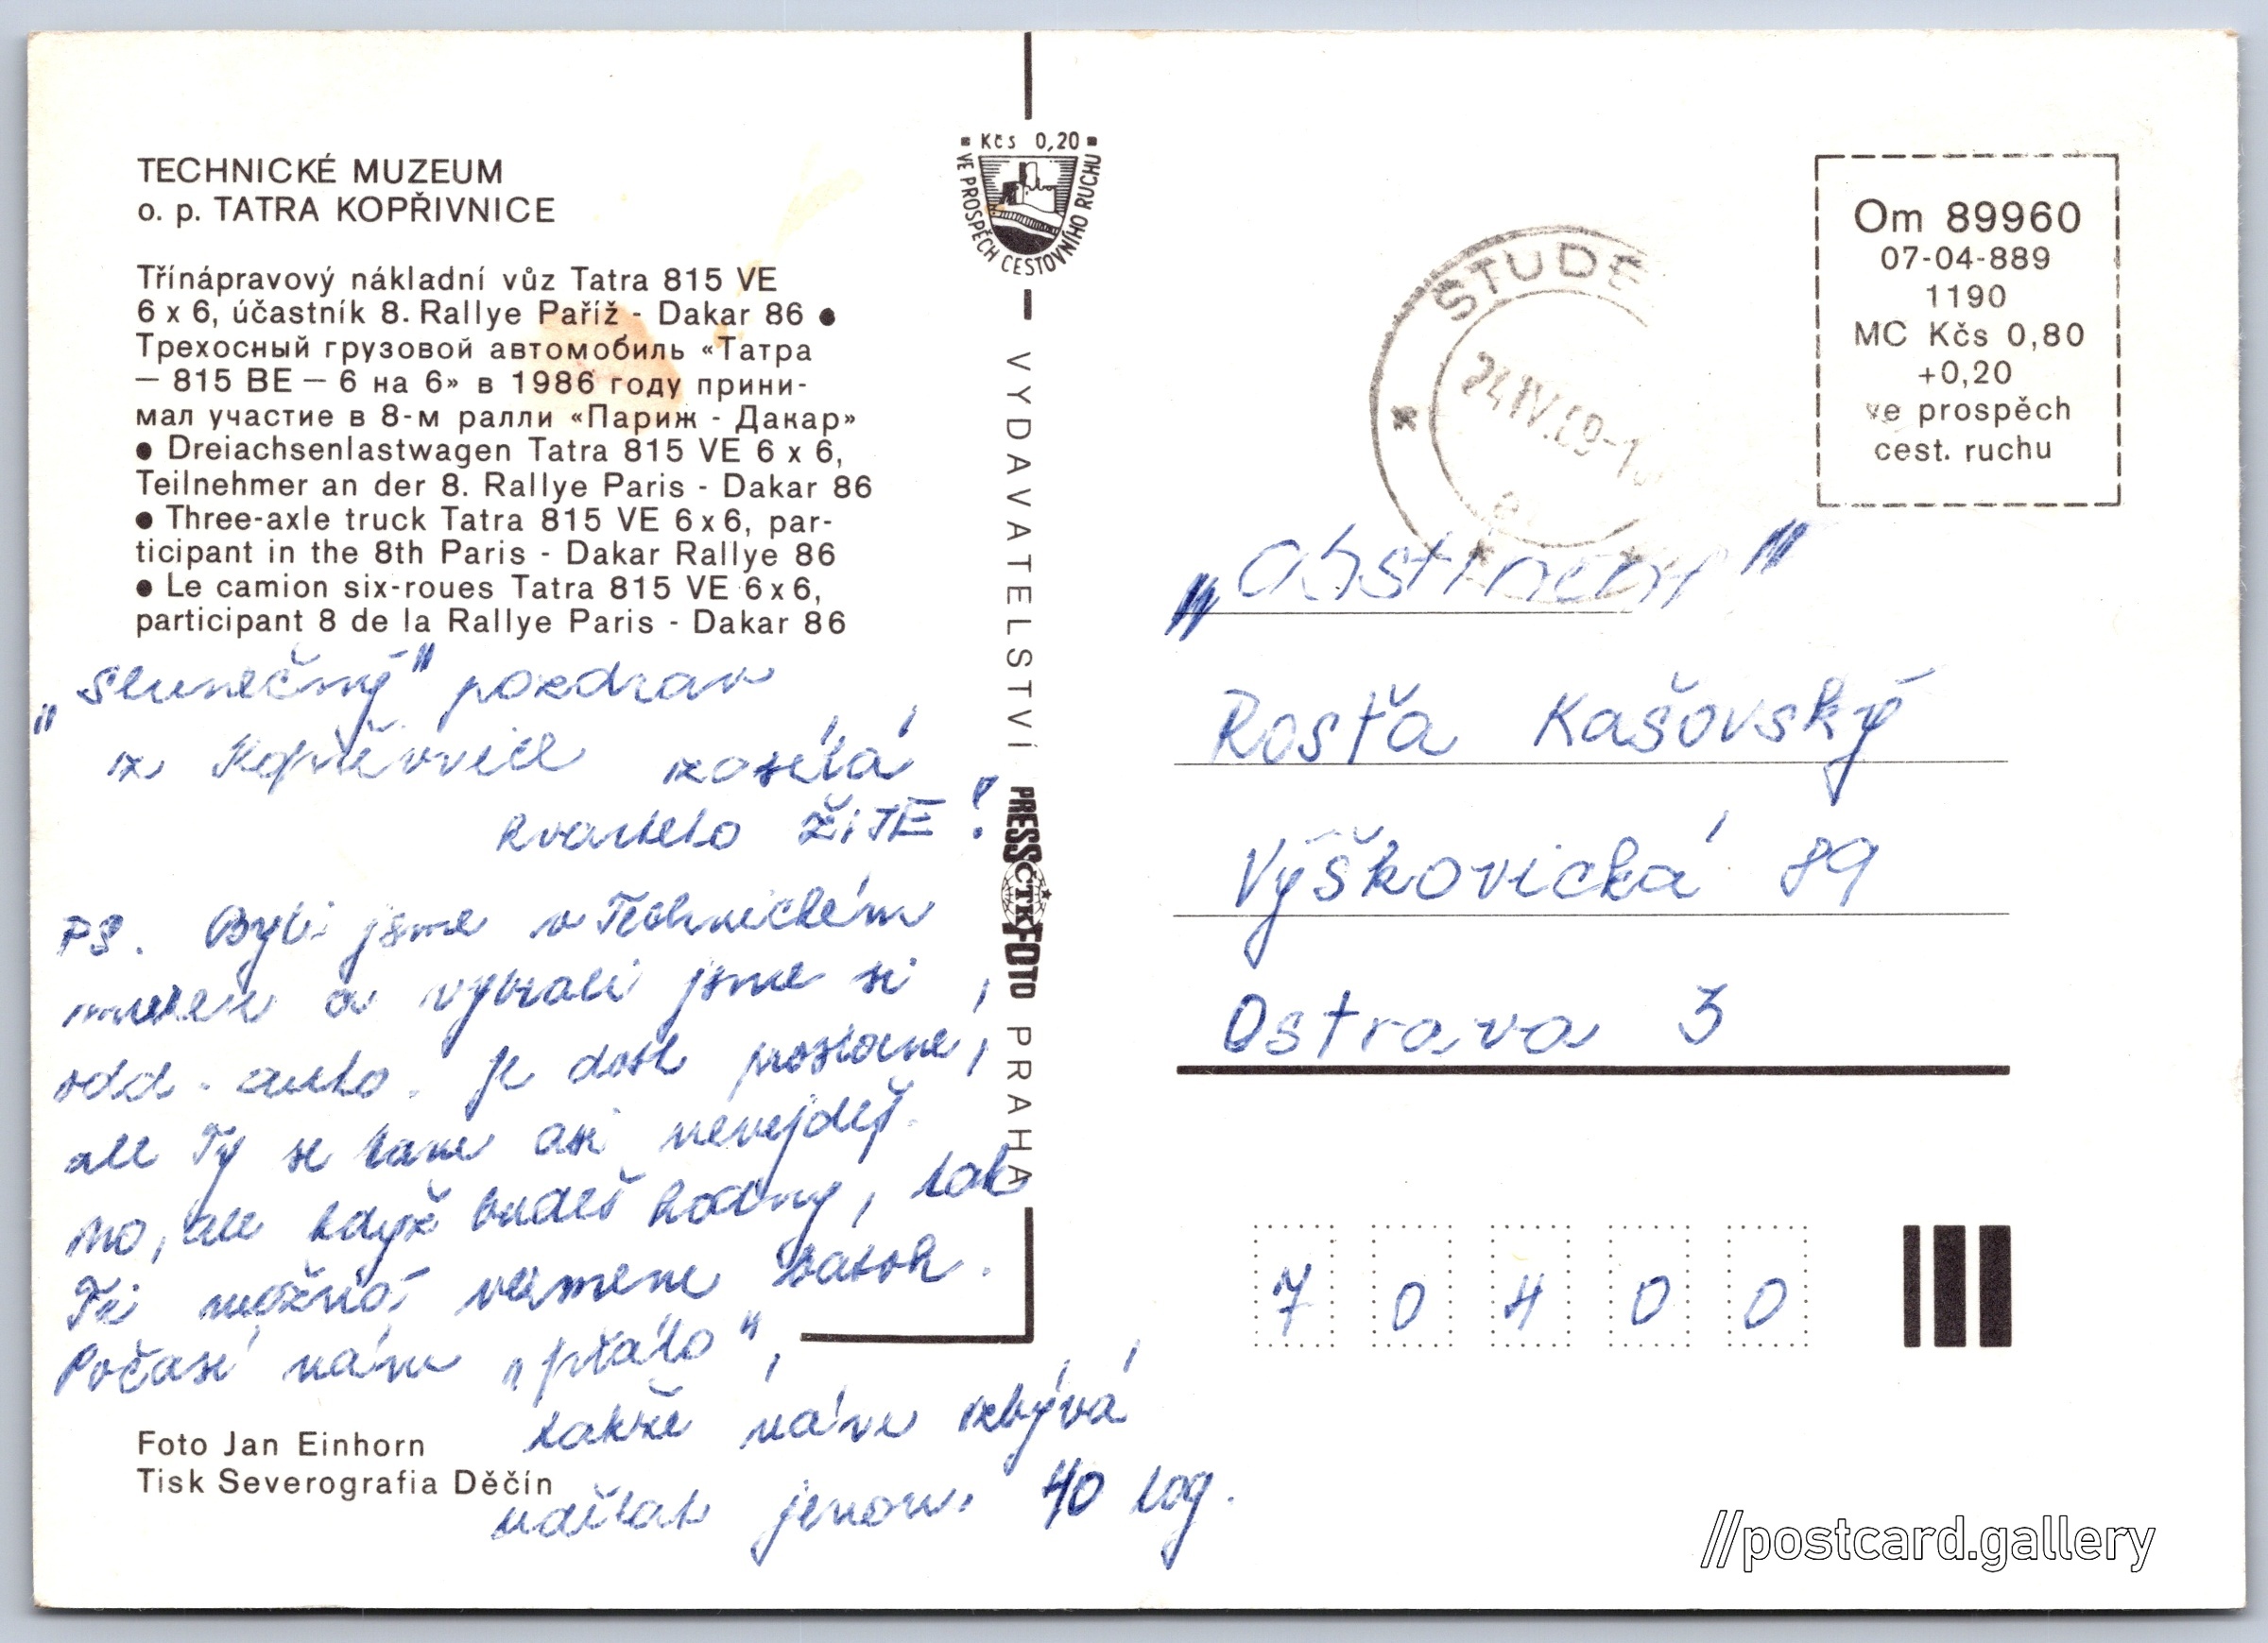 TECHNICKÉ MUZEUM
o. p. TATRA KOPŘIVNICE
Třínápravový nákladní vůz Tatra 815 VE
6 x 6, účastník 8. Rallye Paříž - Dakar 86 ●
Трехосный грузовой автомобиль «Татра
— 815 ВЕ — 6 на 6» в 1986 году прини-
мал участие в 8-м ралли «Париж - Дакар»
● Dreiachsenlastwagen Tatra 815 VE 6 x 6,
Teilnehmer an der 8. Rallye Paris - Dakar 86
● Three-axle truck Tatra 815 VE 6 x 6, par-
ticipant in the 8th Paris - Dakar Rallye 86
● Le camion six-roues Tatra 815 VE 6 x 6,
participant 8 de la Rallye Paris - Dakar 86
„slunečný" pozdrav
z Kopřivnice zasílá
kvarteto ŽITĚ!
PS. Byli jsme v Technickém
muzeu a vybrali jsme si,
odd. auto. Je dost prostorné,
ale Ty se tam asi nevejdeš.
No, ale když budeš hodný, tak
Ti možná vezmeme batoh.
Počasí nám „přálo",
takže nám zbývá
udělat jenom 40 log.
Foto Jan Einhorn
Tisk Severografia Děčín
Kčs 0,20
VE PROSPĚCH CESTOVNÍHO RUCHU
VYDAVATELSTVÍ PRESSFOTO PRAHA
ČTK
STUDE
24.IV.89-1
Om 89960
07-04-889
1190
MC Kčs 0,80
+0,20
ve prospěch
cest. ruchu
„Abstinent"
Rosťa Kašovský
Výškovická 89
Ostrava 3
7 0 4 0 0
//postcard.gallery